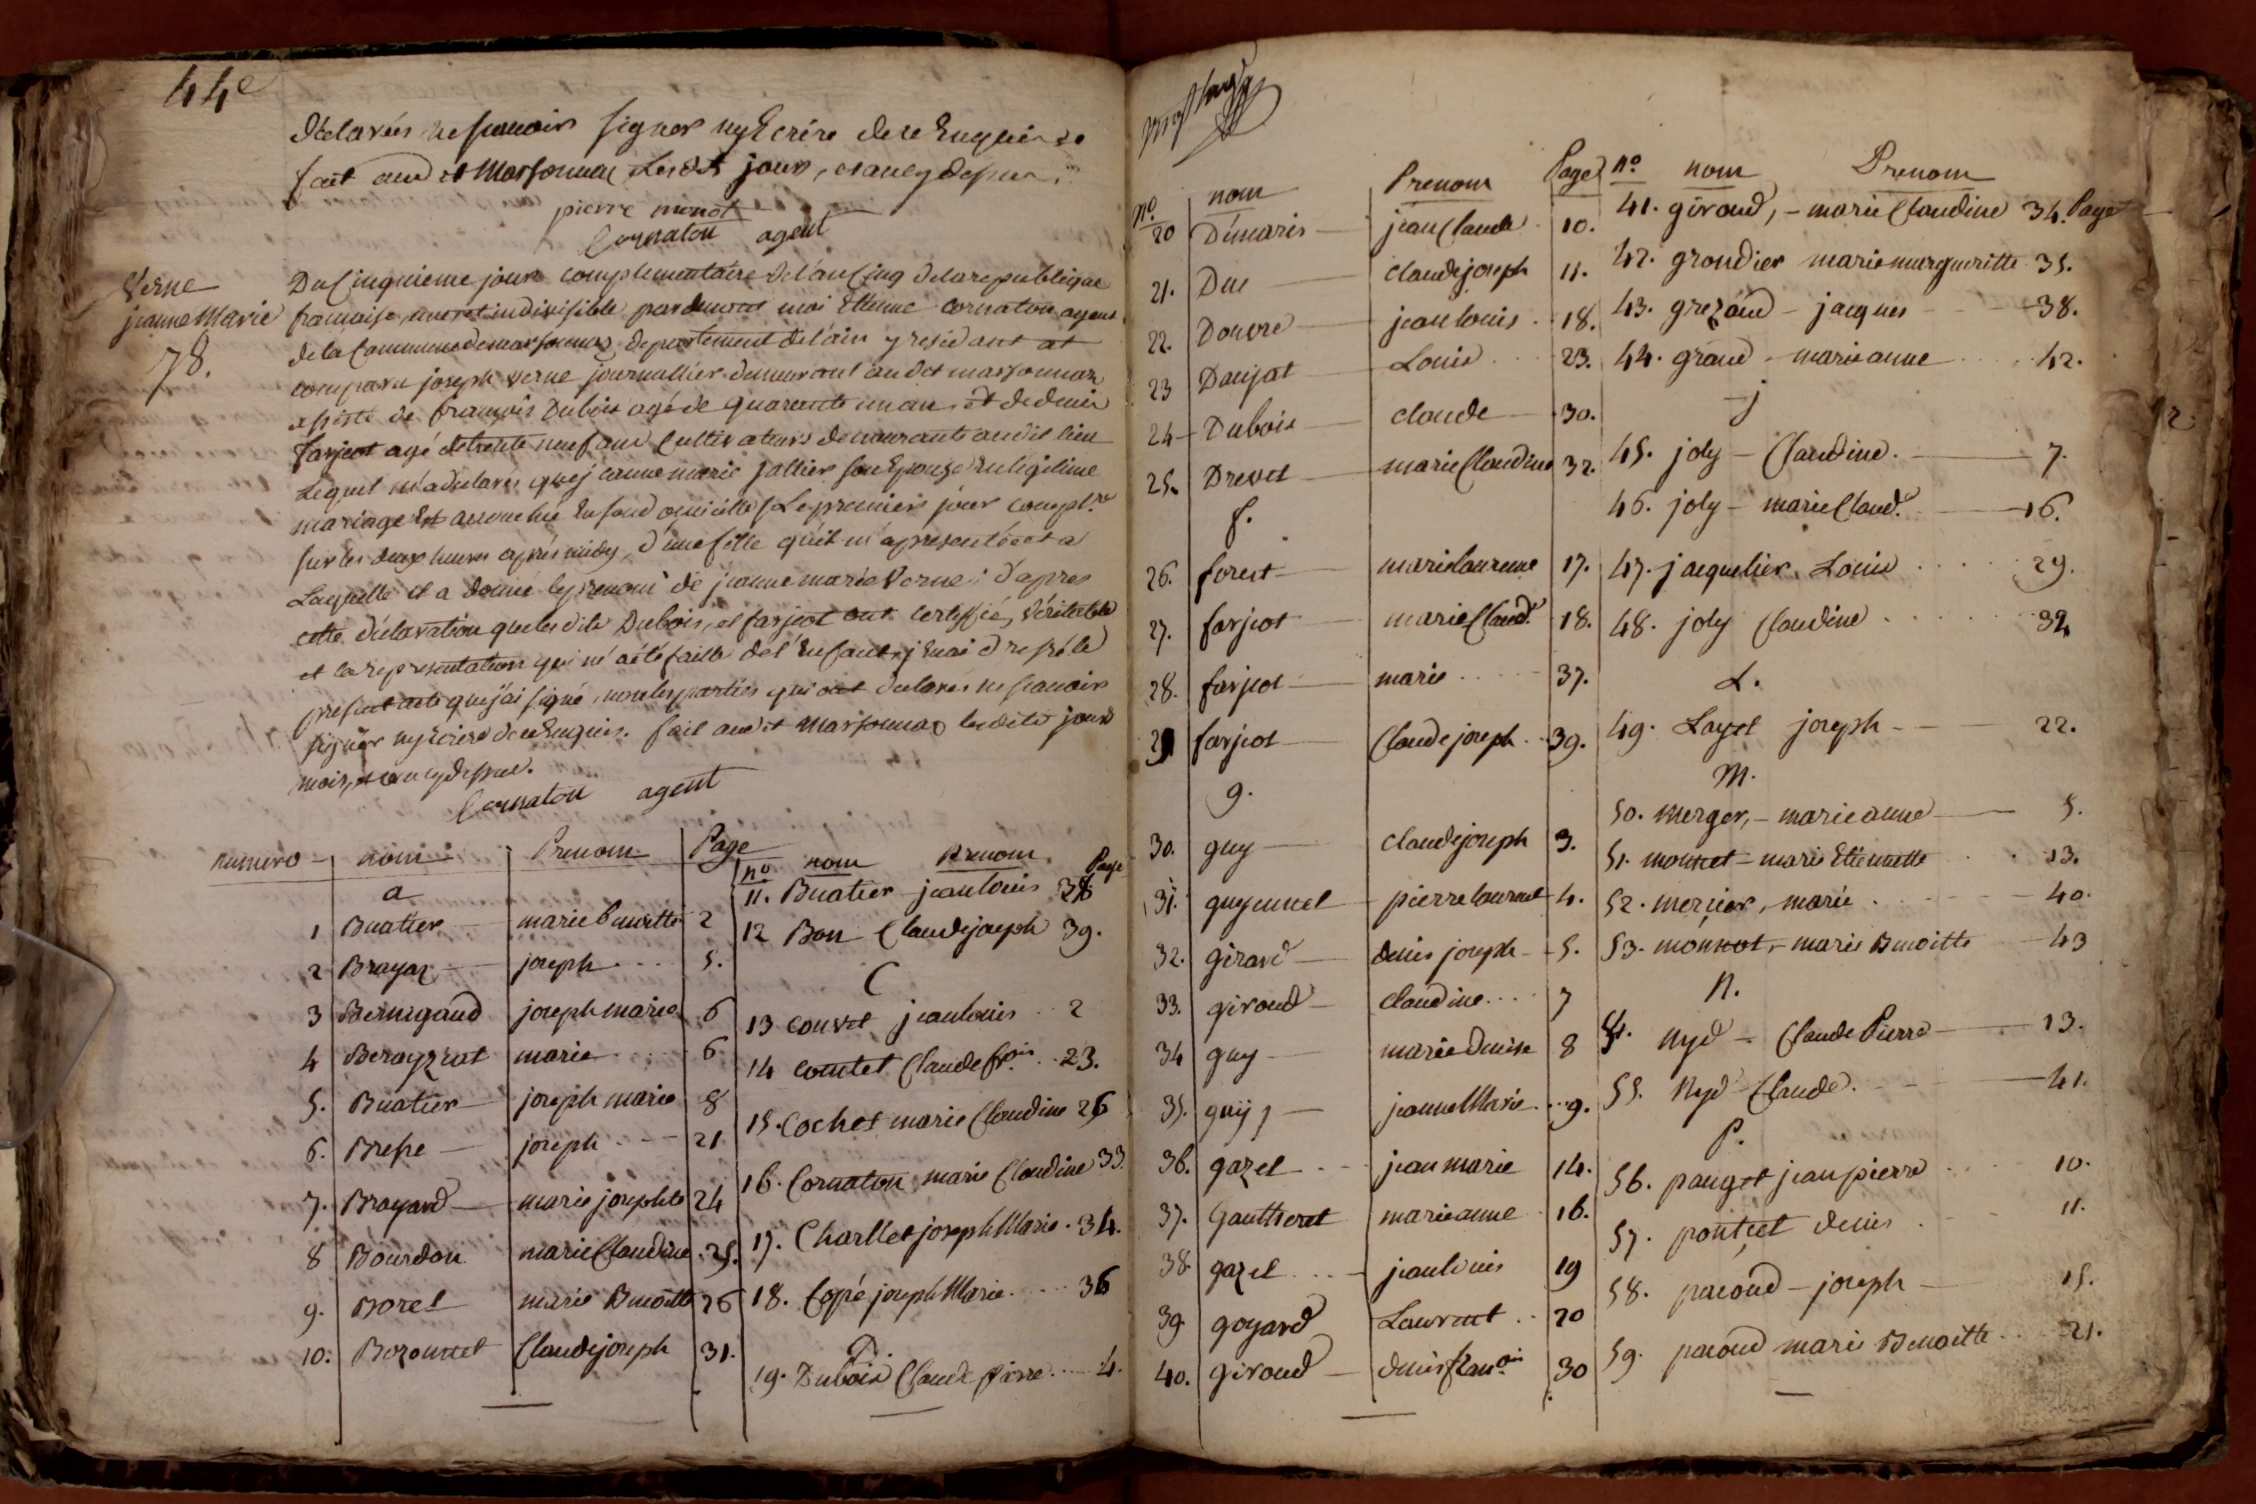 44e
déclarés ne scavoir signer ny Ecrire de ce Enquis
fait audit Marsonnas Lesdits jour, et an cy dessus
pierre monot
Cornaton agent
Verne
jeanne Marie
78.
Du Cinquieme jour complementaire de l'an Cinq de la republique
francaise, une et indivisible pardevant moi Etienne Cornaton agent
de la Commune de marsonnas, departement de l'ain y residant at
comparu joseph verne journallier demeurant au dit marsonnas
assisté de françois Dubois agé de quarante un ans et de denis
farjeot agé de trente neuf ans Cultivateurs demeurants audit lieu
Lequel m'a declarés que jeanne marie jallier son Epouse en legitime
mariage Est accouchée En son domicille Le premier jour compl.re
sur les deux heures aprés midy, d'une fille qu'il m'a presentée et a
Laquelle il a donné le prenom de jeanne marie Verne; d'apres
cette déclaration que lesdits Dubois, et farjeot ont certifiée, véritable
et la representation qui m'a été faitte de l'Enfant, j'Enai dressé le
present acte que j'ai signé, non les parties qui ont declarés ne scavoir
signer ny Ecrire de ce Enquis. fait audit Marsonnas lesdits jour
mois, et an cy dessus.
Cornaton agent
numero nom Prenom Page
a
1 Buatier marie benoitte 2
2 Brayaz joseph 5.
3 Bernigaud joseph marie 6
4 Berayzzat marie 6
5. Buatier joseph marie 8
6. Bresse joseph 21
7. Brayard marie josephte 24
8 Bourdon marie Claudine 25.
9. Borel marie Benoitte 26
10. Bozonnet Claude joseph 31.
no nom prenom Page
11. Buatier jean louis 38
12 Bon Claude joseph 39.
C
13 Convet jean louis 2
14 Comtet Claude fr.ois 23.
15. Cochet marie Claudine 26
16. Cornaton marie Claudine 33.
17. Charllet joseph Marie 34.
18. Copé joseph Marie 36
D.
19. Dubois Claude pierre 4.
No nom Prenom Page
20 Démaris jean Claude 10.
21. Duc claude joseph 11.
22. Douvre jean louis 18.
23 Danjat Louis 23.
24 Dubois claude 30.
25. Drevet marie Claudine 32.
f.
26. forest marie laurence 17.
27. farjeot marie Claud.e 18.
28. farjeot marie 37.
29 farjeot Claude joseph 39.
g.
30. guy claude joseph 3.
31. guyennet pierre laurent 4.
32. girard denis joseph 5.
33. giroud claudine 7
34 guy marie denise 8
35. guy jeanne Marie 9.
36. gazel jean marie 14.
37. Gautheret marie anne 16.
38. gazel jean louis 19
39. goyard Laurent 20
40. giroud denis fran.ois 30
no nom Prenom
41. giroud, marie Claudine 34. Page
42. grondier marie margueritte 35.
43. grezaud jacques 38.
44. grand marie anne 42.
j
45. joly Claudine. 7.
46. joly marie Claud.e 16.
47. jacquelier Louis 29.
48. joly Claudine 32
L.
49. Layet joseph 22.
M.
50. merger, marie anne 5.
51. monnet marie Etiennette 13.
52. mercier, marie 40.
53. monnot, marie Benoitte 43
N.
54. Nyd Claude Pierre 13.
55. Nyd Claude. 41.
P.
56. pauget jean pierre 10.
57. pontcet denis 11.
58. pacoud joseph 15.
59. pacoud marie Benoitte 21.